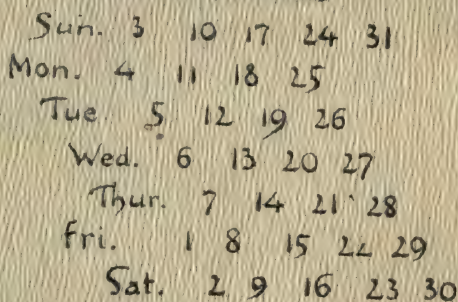 Sun. 3 10 17 24 31
Mon. 4 11 18 25
Tue. 5 12 19 26
Wed. 6 13 20 27
Thur. 7 14 21 28
Fri. 1 8 15 22 29
Sat. 2 9 16 23 30